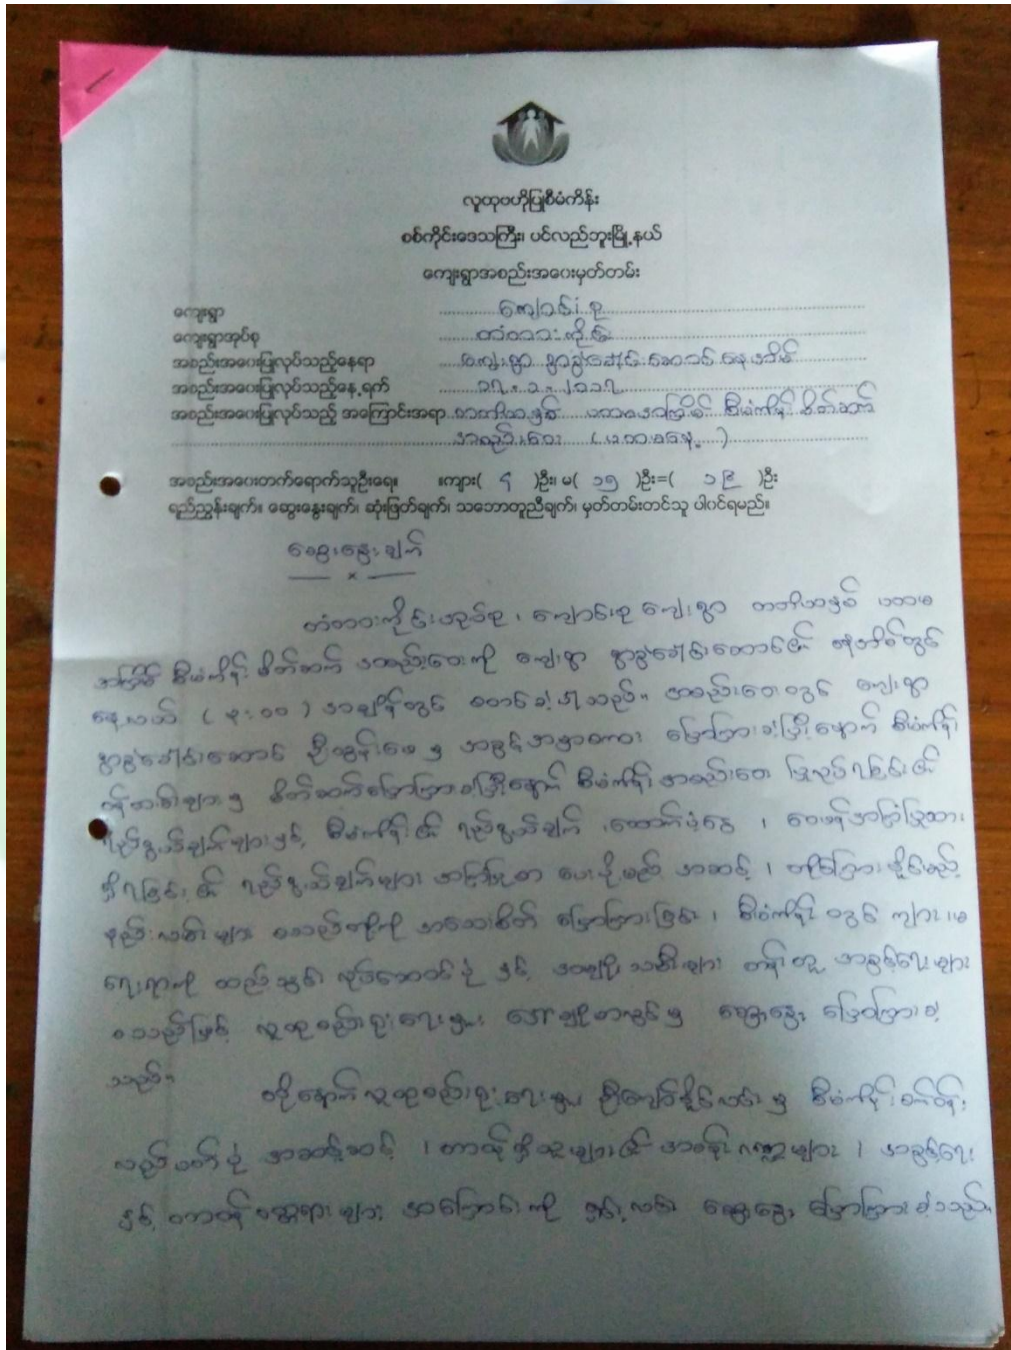 လူထုဗဟိုပြုစီမံကိန်း
စစ်ကိုင်းဒေသကြီး၊ ပင်လည်ဘူးမြို့နယ်
ကျေးရွာအစည်းအဝေးမှတ်တမ်း
ကျေးရွာ ကျောင်းစု
ကျေးရွာအုပ်စု တံတားကိုင်း
အစည်းအဝေးပြုလုပ်သည့်နေရာ ကျေးရွာ ရွာခွဲခေါင်းဆောင် နေအိမ်
အစည်းအဝေးပြုလုပ်သည့်နေ့ရက် ၁၇-၁-၂၀၁၇
အစည်းအဝေးပြုလုပ်သည့် အကြောင်းအရာ တတိယနှစ် ပထမအကြိမ် စီမံကိန်း မိတ်ဆက်
အစည်းအဝေး (ပထမနေ့)
အစည်းအဝေးတက်ရောက်သူဦးရေ။ ။ကျား( ၄ )ဦး၊ မ( ၁၅ )ဦး=( ၁၉ )ဦး
ရည်ညွှန်းချက်၊ ဆွေးနွေးချက်၊ ဆုံးဖြတ်ချက်၊ သဘောတူညီချက်၊ မှတ်တမ်းတင်သူ ပါဝင်ရမည်။
ဆွေးနွေးချက်
တံတားကိုင်းအုပ်စု ၊ ကျောင်းစု ကျေးရွာ တတိယနှစ် ပထမ
အကြိမ် စီမံကိန်း မိတ်ဆက် အစည်းအဝေးကို ကျေးရွာ ရွာခွဲခေါင်းဆောင်၏ နေအိမ်တွင်
နေ့လယ် အချိန်တွင် စတင်ခဲ့ပါသည်။ အစည်းအဝေးတွင် ကျေးရွာ
ရွာခွဲခေါင်းဆောင် ဦးထွန်းဖေ မှ အဖွင့်အမှာစကား ပြောကြားခဲ့ပြီးနောက် စီမံကိန်း
ဝန်ထမ်းများ မှ မိတ်ဆက်ပြောကြားခဲ့ပြီးနောက် စီမံကိန်း အစည်းအဝေး ပြုလုပ်ရခြင်း၏
ရည်ရွယ်ချက်များနှင့် စီမံကိန်း၏ ရည်ရွယ်ချက် ၊ထောက်ပံ့ငွေ ၊ ဝေဖန်အကြံပြုစာ
ရှိရခြင်း၏ ရည်ရွယ်ချက်များ အကြံပြုစာ ပေးပို့မည့် အဆင့် ၊ တိုင်ကြားနိုင်မည့်
နည်းလမ်းများ စသည်တို့ကို အသေးစိတ် ပြောကြားခြင်း ၊ စီမံကိန်း တွင် ကျား၊မ
ရေးရာကို ထည့်သွင်း လုပ်ဆောင်ပုံ နှင့် အမျိုးသမီးများ တန်းတူ အခွင့်ရေးများ
စသည်ဖြင့် လူထုစည်းရုံးရေးမှူး မှ ဆွေးနွေး ပြောကြားခဲ့
သည်။
ထို့နောက် လူထုစည်းရုံးရေးမှူး ဦးကျော်နိုင်လင်း မှ စီမံကိန်းစက်ဝန်း
လည်ပတ်ပုံ အဆင့်ဆင့် ၊ တာဝန်ရှိသူများ၏ အခန်းကဏ္ဍများ ၊ အခွင့်ရေး
နှင့် တာဝန် ဝတ္တရားများ အကြောင်းကို ရှင်းလင်း ဆွေးနွေး ပြောကြားခဲ့သည်။